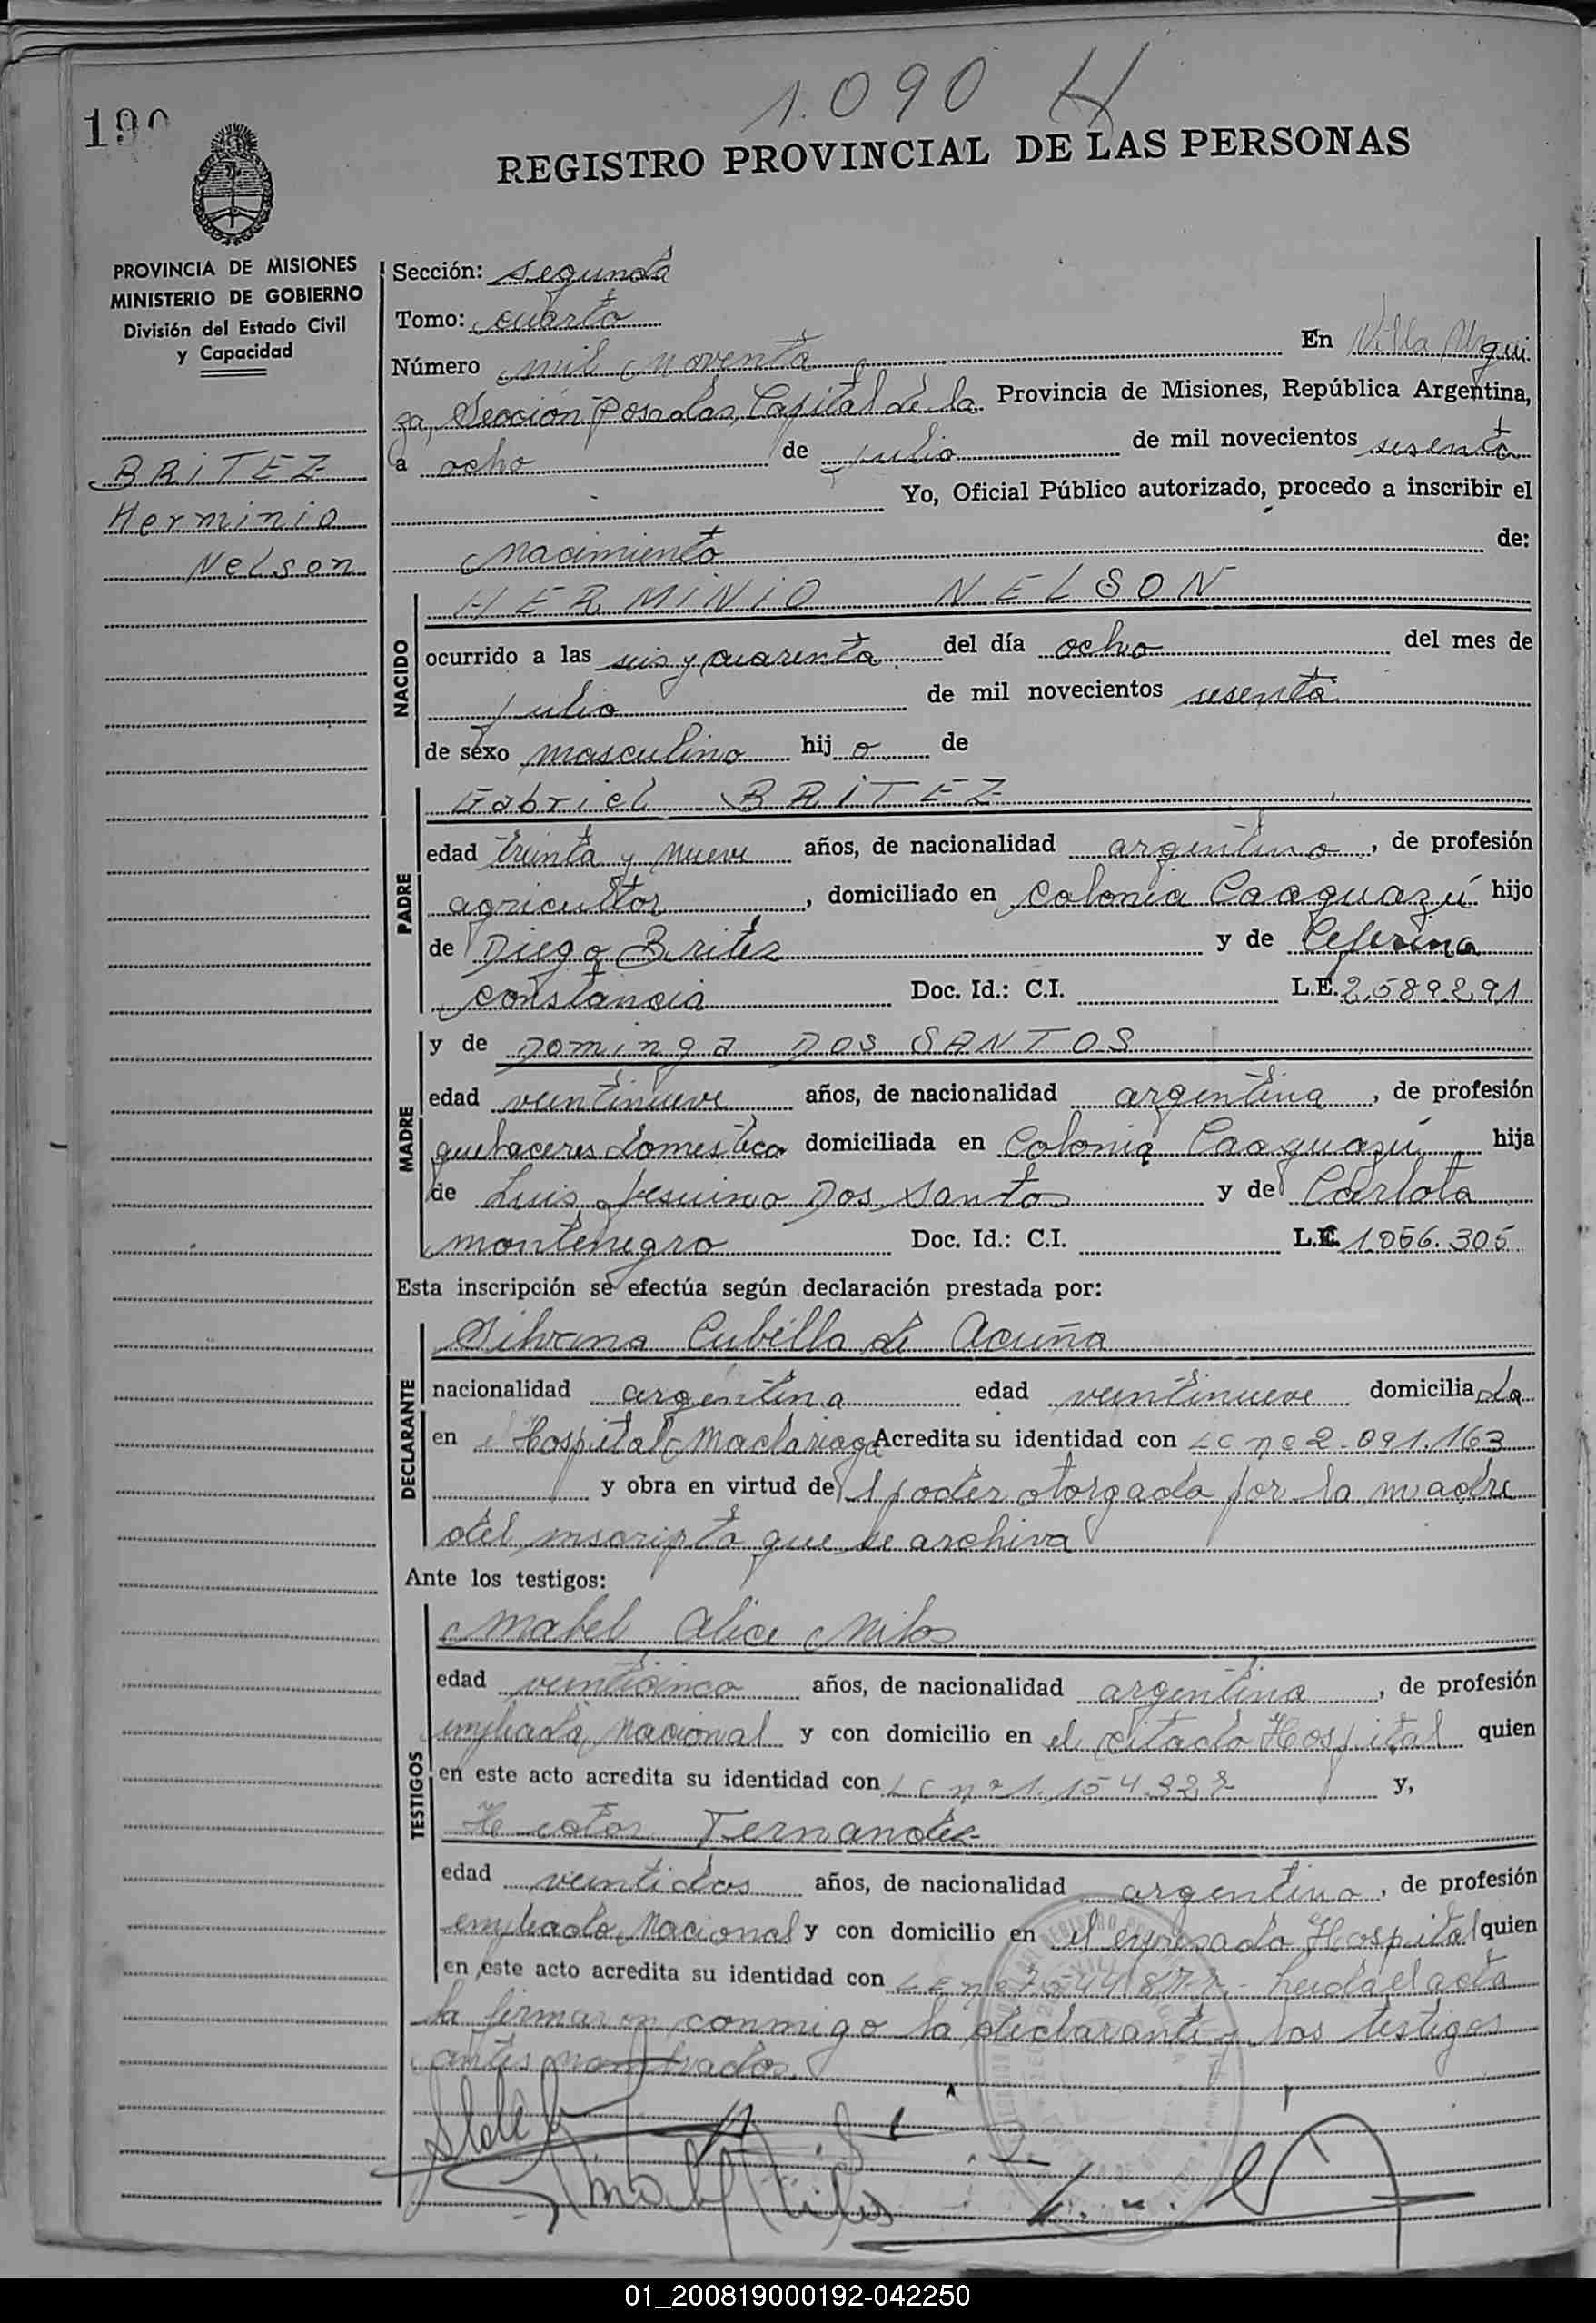 1.090 H
190
REGISTRO PROVINCIAL DE LAS PERSONAS
PROVINCIA DE MISIONES
MINISTERIO DE GOBIERNO
División del Estado Civil
y Capacidad
BRITEZ
Herminio
Nelson
Sección: segunda
Tomo: cuarto
Número mil noventa En Villa Urqui
za, Sección Posadas, Capital de la Provincia de Misiones, República Argentina,
a ocho de julio de mil novecientos sesenta
Yo, Oficial Público autorizado, procedo a inscribir el
nacimiento de:
NACIDO
HERMINIO NELSON
ocurrido a las seis y cuarenta del día ocho del mes de
julio de mil novecientos sesenta
de sexo masculino hijo de
PADRE
Gabriel BRITEZ
edad treinta y nueve años, de nacionalidad argentino, de profesión
agricultor, domiciliado en Colonia Caaguazú hijo
de Diego Britez y de Ceferina
Constancia Doc. Id.: C.I. L.E. 2.589.291
MADRE
y de Dominga DOS SANTOS
edad veintinueve años, de nacionalidad argentina, de profesión
quehaceres domestico domiciliada en Colonia Caaguazú hija
de Luis Jesuino Dos Santos y de Carlota
montenegro Doc. Id.: C.I. L.C. 1.056.305
Esta inscripción se efectúa según declaración prestada por:
DECLARANTE
Silvana Cubilla de Acuña
nacionalidad argentina edad veintinueve domiciliada
en el Hospital Madariaga Acredita su identidad con LC nº 2.091.163
y obra en virtud del poder otorgado por la madre
del inscripto que se archiva
Ante los testigos:
TESTIGOS
Mabel Alice Milos
edad veinticinco años, de nacionalidad argentina, de profesión
empleada Nacional y con domicilio en el citado Hospital quien
en este acto acredita su identidad con LC nº 1.154.327 y,
Hector Fernandez
edad veintidos años, de nacionalidad argentino, de profesión
empleado Nacional y con domicilio en el expresado Hospital quien
en este acto acredita su identidad con LE nº Leida el acta
la firmaron conmigo la declarante y los testigos
antes nombrados.
01_200819000192-042250